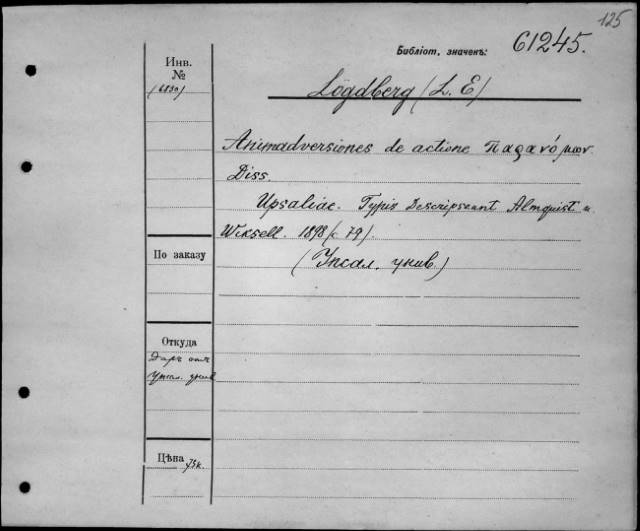 125
Библіот. значекъ: 61245.
Инв.
№
(6830)
Lögdberg (L. E)
Animadversiones de actione παρανόμων.
Diss.
Upsaliae. Typis Descripserunt Almquist u.
Wiksell. 1898 (c. 79).
(Упсал. унив.)
По заказу
Откуда
Даръ отъ
Упсал. унив
Цѣна 75к.